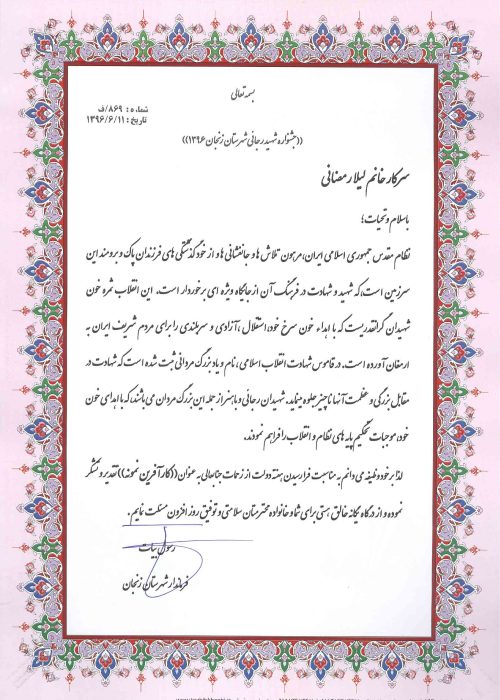 بسمه تعالی
شماره : ۸۶۹/ف
تاریخ : ۱۳۹۶/۶/۱۱
((جشنواره شهید رجائی شهرستان زنجان ۱۳۹۶))
سرکار خانم لیلا رمضانی
باسلام و تحیات؛
نظام مقدس جمهوری اسلامی ایران، مرهون تلاش ها و جانفشانی ها و از خودگذشتگی های فرزندان پاک و برومند این
سرزمین است، که شهید و شهادت در فرهنگ آن از جایگاه ویژه ای برخوردار است. این انقلاب ثمره خون
شهیدان گرانقدریست که با اهداء خون سرخ خود، استقلال ،آزادی و سربلندی را برای مردم شریف ایران به
ارمغان آورده است. در قاموس شهادت انقلاب اسلامی، نام و یاد بزرگ مردانی ثبت شده است که شهادت در
مقابل بزرگی و عظمت آنها ناچیز جلوه مینماید. شهیدان رجائی و باهنر از جمله این بزرگ مردان می باشند، که با اهدای خون
خود، موجبات تحکیم پایه های نظام و انقلاب را فراهم نمودند.
لذا بر خود وظیفه می دانم به مناسبت فرارسیدن هفته دولت از زحمات جنابعالی به عنوان ((کارآفرین نمونه)) تقدیر و تشکر
نموده و از درگاه یگانه خالق هستی برای شما و خانواده محترمتان سلامتی و توفیق روز افزون مسئلت نمایم.
رسول بیات
فرماندار شهرستان زنجان